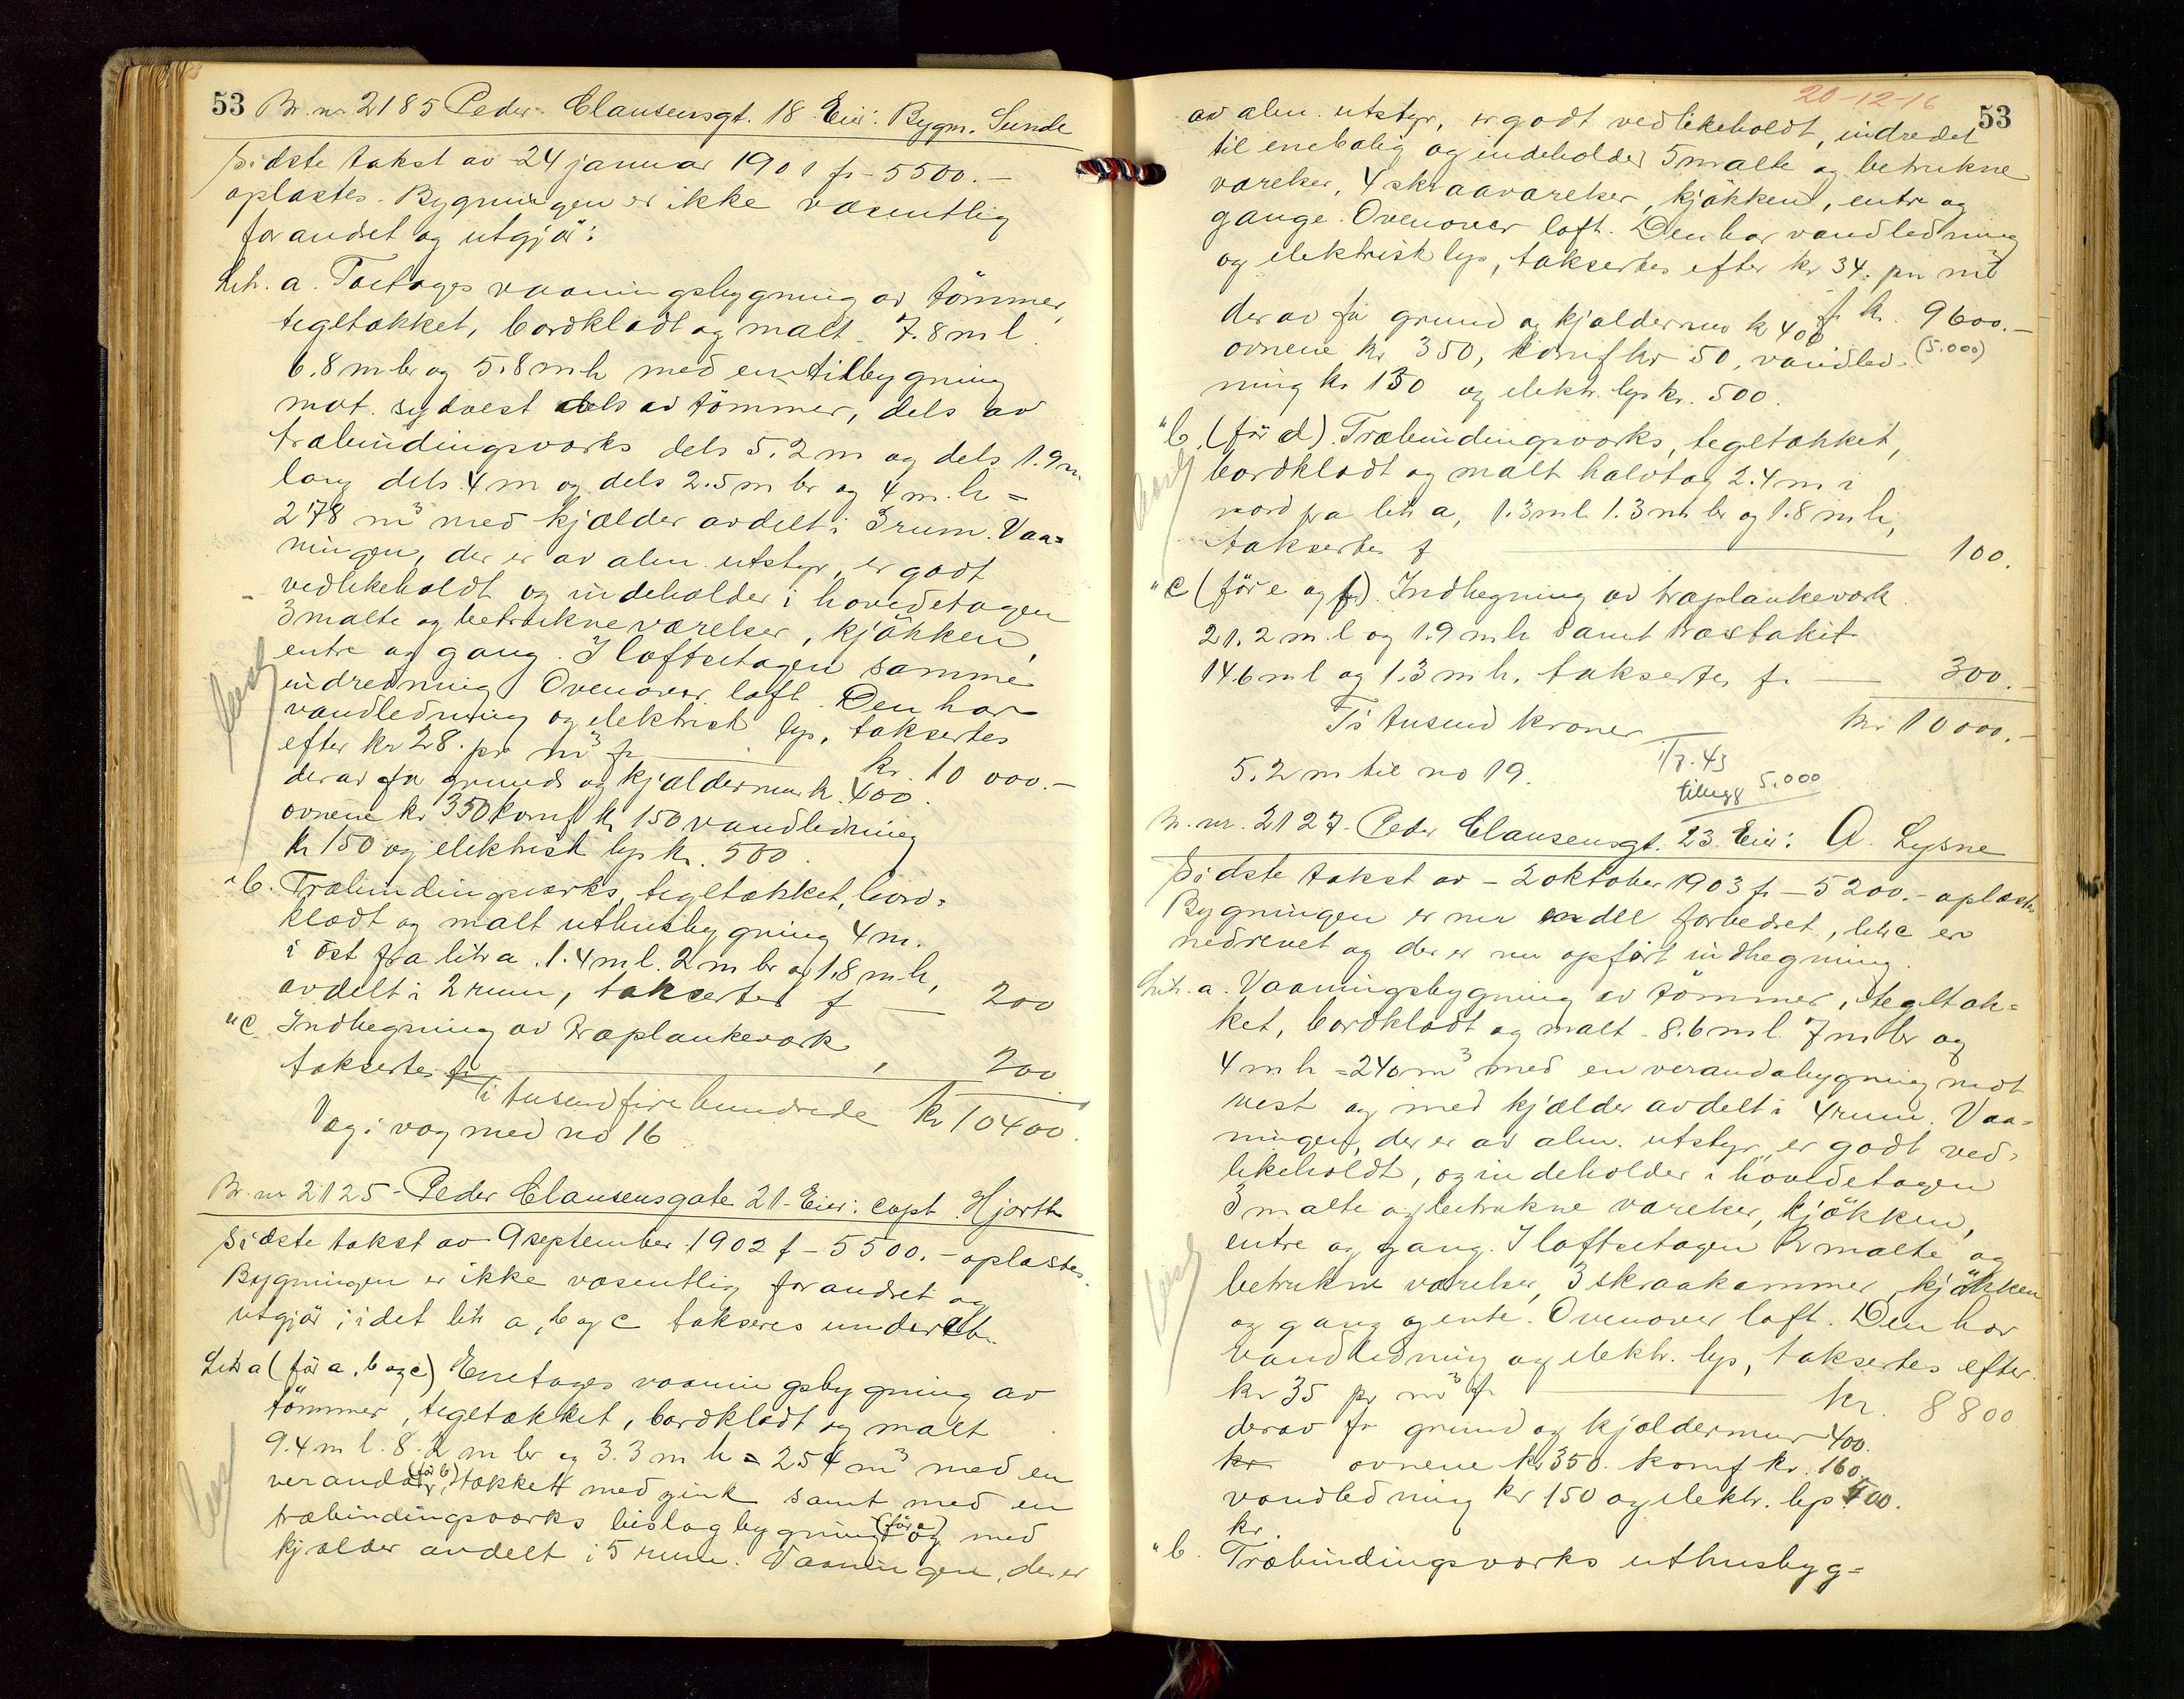 53 Br. nr 2185 Peder Clausensgt. 18 Eier: Bygm. Sunde
Sidste takst av 24 januar 1901 fr - 5500.-
oplæstes. Bygningen er ikke væsentlig
forandret og utgjør:
Litr. a. Toetages vaaningsbygning av tömmer,
tegltækket, bordklædt og malt. 7.8 m l.
6.8 m br og 5.8 m h med en tilbygning
mot sydvest dels av tömmer, dels av
træbindingsværks dels 5.2 m og dels 1.9 m
lang dels 4 m og dels 2.5 m br og 4 m. h =
278 m³ med kjælder avdelt i 3 rum. Vaa=
ningen, der er av alm. utstyr, er godt
vedlikeholdt og indeholder i hovedetagen
3 malte og betrukne værelser, kjökken,
entre og gang. I loftsetagen samme
indredning. Ovenover loft. Den har
vandledning og elektrisk lys, taksertes
efter kr 28. pr m³ fr kr. 10 000.-
derav for grund og kjældermur kr. 400.
ovnene kr 350 komf kr 150 vandledning
kr 150 og elektrisk lys kr. 500.
" b. Træbindingsværks, tegltækket, bord=
klædt og malt uthusbygning 4 m.
i öst fra litr a. 1.4 m l. 2 m br og 1.8 m h,
avdelt i 2 rum, taksertes f 200
" c Indhegning av træplankeværk,
taksertes fr 200
Ti tusend fire hundrede kr 10400.
Væg i væg med no 16
Br. nr 2125 - Peder Clausensgate 21 - Eier: capt. Hjorth
Sidste takst av 9 september 1902 f - 5500.- oplæstes.
Bygningen er ikke væsentlig forandret og
utgjör; idet litr a, b og c takseres under ett.
Litr a (för a, b og c) Enetages vaaningsbygning av
tömmer, tegltækket, bordklædt og malt
9.4 m l. 8.2 m br og 3.3 m h = 254 m³ med en
veranda (för b), tækket med zink samt med en
træbindingsværks bislagbygning (för c) og med
kjælder avdelt i 5 rum. Vaaningen, der er
20-12-16
53
av alm. utstyr, er godt vedlikeholdt, indredet
til enebolig og indeholder 5 malte og betrukne
værelser, 4 skraaværelser, kjökken, entre og
gange. Ovenover loft. Den har vandledning
og elektrisk lys, taksertes efter kr 34. pr m³
fr kr. 9600.-
derav for grund og kjældermur kr 400
(5.000)
ovnene kr 350, komf kr 50, vandled=
ning kr 150 og elektr. lys kr. 500.
" b. (för d). Træbindingsværks, tegltækket,
bordklædt og malt halvtag 2.4 m i
nord fra litr a, 1.3 m l. 1.3 m br og 1.8 m h,
taksertes f 100.
" c (för e og f). Indhegning av træplankeværk
21.2 m. l og 1.9 m h samt træstakit
14.6 m l og 1.3 m h. taksertes fr 300.-
Ti tusend kroner kr 10000.-
5.2 m til no 19.
1/7-43
tillegg 5.000
Br. nr. 2127 - Peder Clausensgt. 23. Eier: A. Lysne
Sidste takst av - 2 oktober 1903 fr - 5200.- oplæstes
Bygningen er nu en del forbedret, litr c er
nedrevet og der er nu opført indhegning.
Litr. a. Vaaningsbygning av tömmer, tegltæk=
ket, bordklædt og malt - 8.6 m l. 7 m br og
4 m h = 240 m³ med en verandabygning mot
vest og med kjælder avdelt i 4 rum. Vaa=
ningen, der er av alm. utstyr, er godt ved=
likeholdt, og indeholder i hovedetagen
3 malte og betrukne værelser, kjökken,
entre og gang. I loftsetagen malte og
betrukne værelser, 3 skraakammer, kjökken
og gang og entre. Ovenover loft. Den har
vandledning og elektr. lys, taksertes efter
kr 35 pr m³ fr kr. 8800
derav fr grund og kjældermur 400.
kr ovnene kr 350. komf kr. 160.
vandledning kr 150 og elektr. lys 400.
kr.
" b. Træbindingsværks uthusbyg=